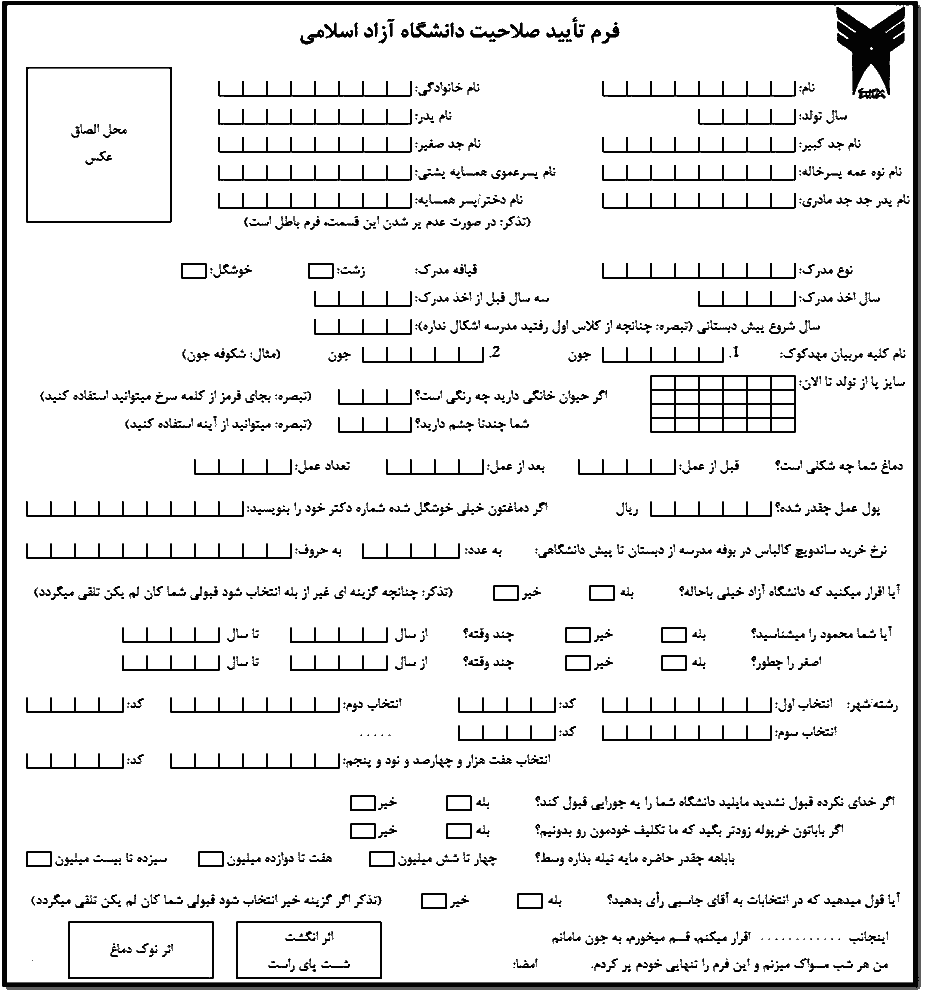 فرم تأیید صلاحیت دانشگاه آزاد اسلامی
محل الصاق
عکس
نام: نام خانوادگی:
سال تولد: نام پدر:
نام جد کبیر: نام جد صغیر:
نام نوه عمه پسرخاله: نام پسرعموی همسایه پشتی:
نام پدر جد جد مادری: نام دختر/پسر همسایه:
(تذکر: در صورت عدم پر شدن این قسمت، فرم باطل است)
نوع مدرک: قیافه مدرک: زشت: خوشگل:
سال اخذ مدرک: سه سال قبل از اخذ مدرک:
سال شروع پیش دبستانی (تبصره: چنانچه از کلاس اول رفتید مدرسه اشکال نداره):
نام کلیه مربیان مهدکوک: 1. جون 2. جون (مثال: شکوفه جون)
سایز پا از تولد تا الان: اگر حیوان خانگی دارید چه رنگی است؟ (تبصره: بجای قرمز از کلمه سرخ میتوانید استفاده کنید)
شما چندتا چشم دارید؟ (تبصره: میتوانید از آینه استفاده کنید)
دماغ شما چه شکلی است؟ قبل از عمل: بعد از عمل: تعداد عمل:
پول عمل چقدر شده؟ ریال اگر دماغتون خیلی خوشگل شده شماره دکتر خود را بنویسید:
نرخ خرید ساندویچ کالباس در بوفه مدرسه از دبستان تا پیش دانشگاهی: به عدد: به حروف:
آیا اقرار میکنید که دانشگاه آزاد خیلی باحاله؟ بله خیر (تذکر: چنانچه گزینه ای غیر از بله انتخاب شود قبولی شما کان لم یکن تلقی میگردد)
آیا شما محمود را میشناسید؟ بله خیر چند وقته؟ از سال تا سال
اصغر را چطور؟ بله خیر چند وقته؟ از سال تا سال
رشته/شهر: انتخاب اول: کد: انتخاب دوم: کد:
انتخاب سوم: کد: .....
انتخاب هفت هزار و چهارصد و نود و پنجم: کد:
اگر خدای نکرده قبول نشدید مایلید دانشگاه شما را یه جورایی قبول کند؟ بله خیر
اگر باباتون خرپوله زودتر بگید که ما تکلیف خودمون رو بدونیم؟ بله خیر
باباهه چقدر حاضره مایه تیله بذاره وسط؟ چهار تا شش میلیون هفت تا دوازده میلیون سیزده تا بیست میلیون
آیا قول میدهید که در انتخابات به آقای جاسبی رأی بدهید؟ بله خیر (تذکر اگر گزینه خیر انتخاب شود قبولی شما کان لم یکن تلقی میگردد)
اینجانب ............ اقرار میکنم، قسم میخورم، به جون مامانم
من هر شب مسواک میزنم و این فرم را تنهایی خودم پر کردم. امضا:
اثر انگشت
شست پای راست
اثر نوک دماغ